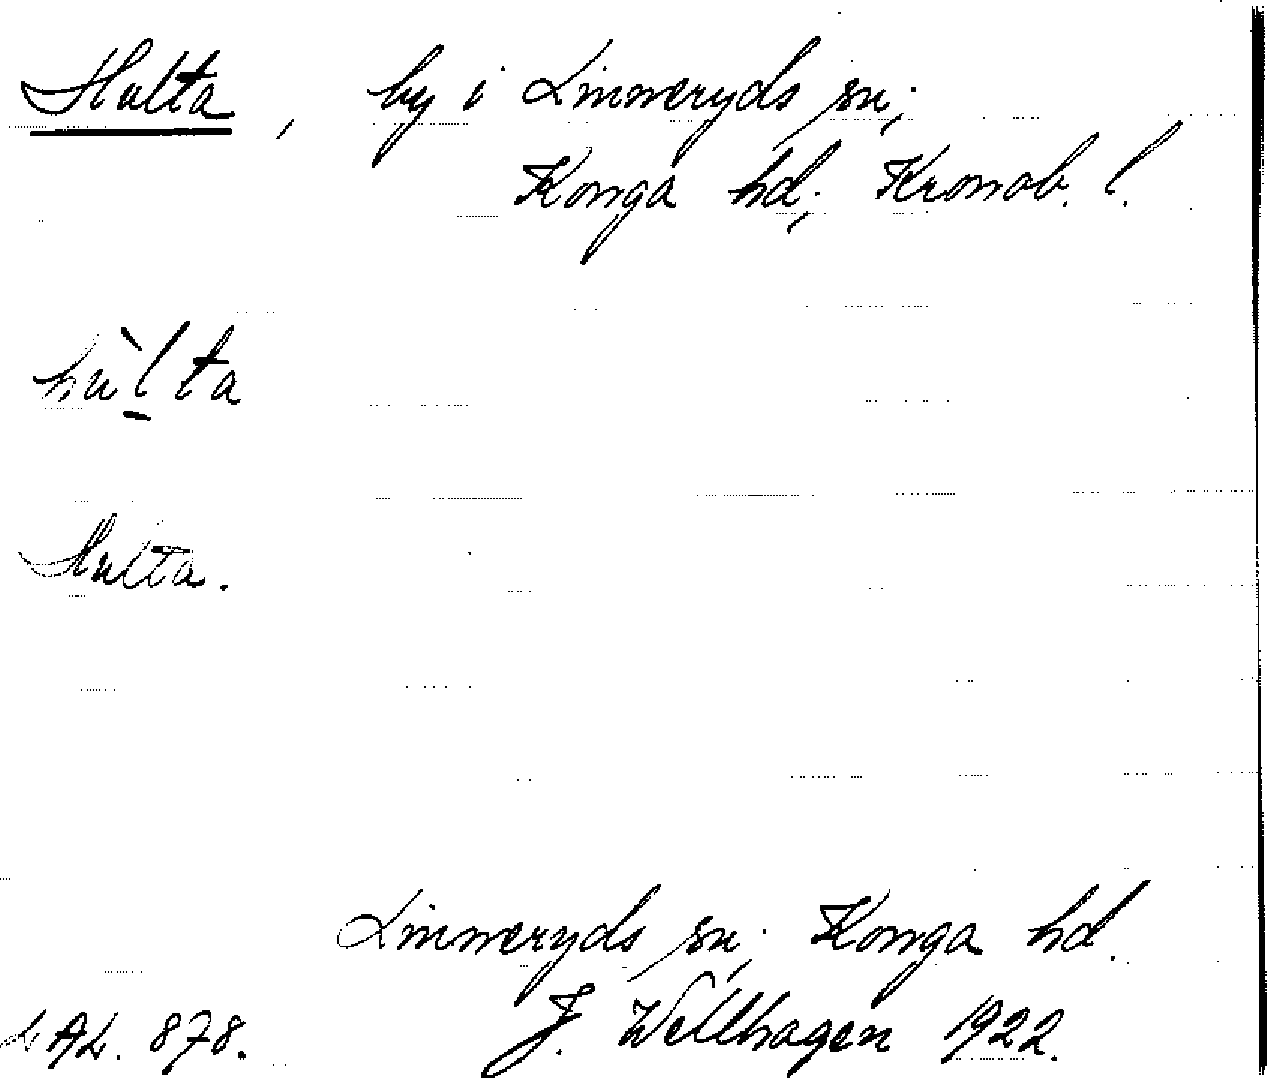 Hulta, by i Linneryds sn;
Konga hd; Kronob. l.
hùl̠ta
Hulta.
Linneryds sn; Konga hd.
LAL. 878. J. Wellhagen 1922.